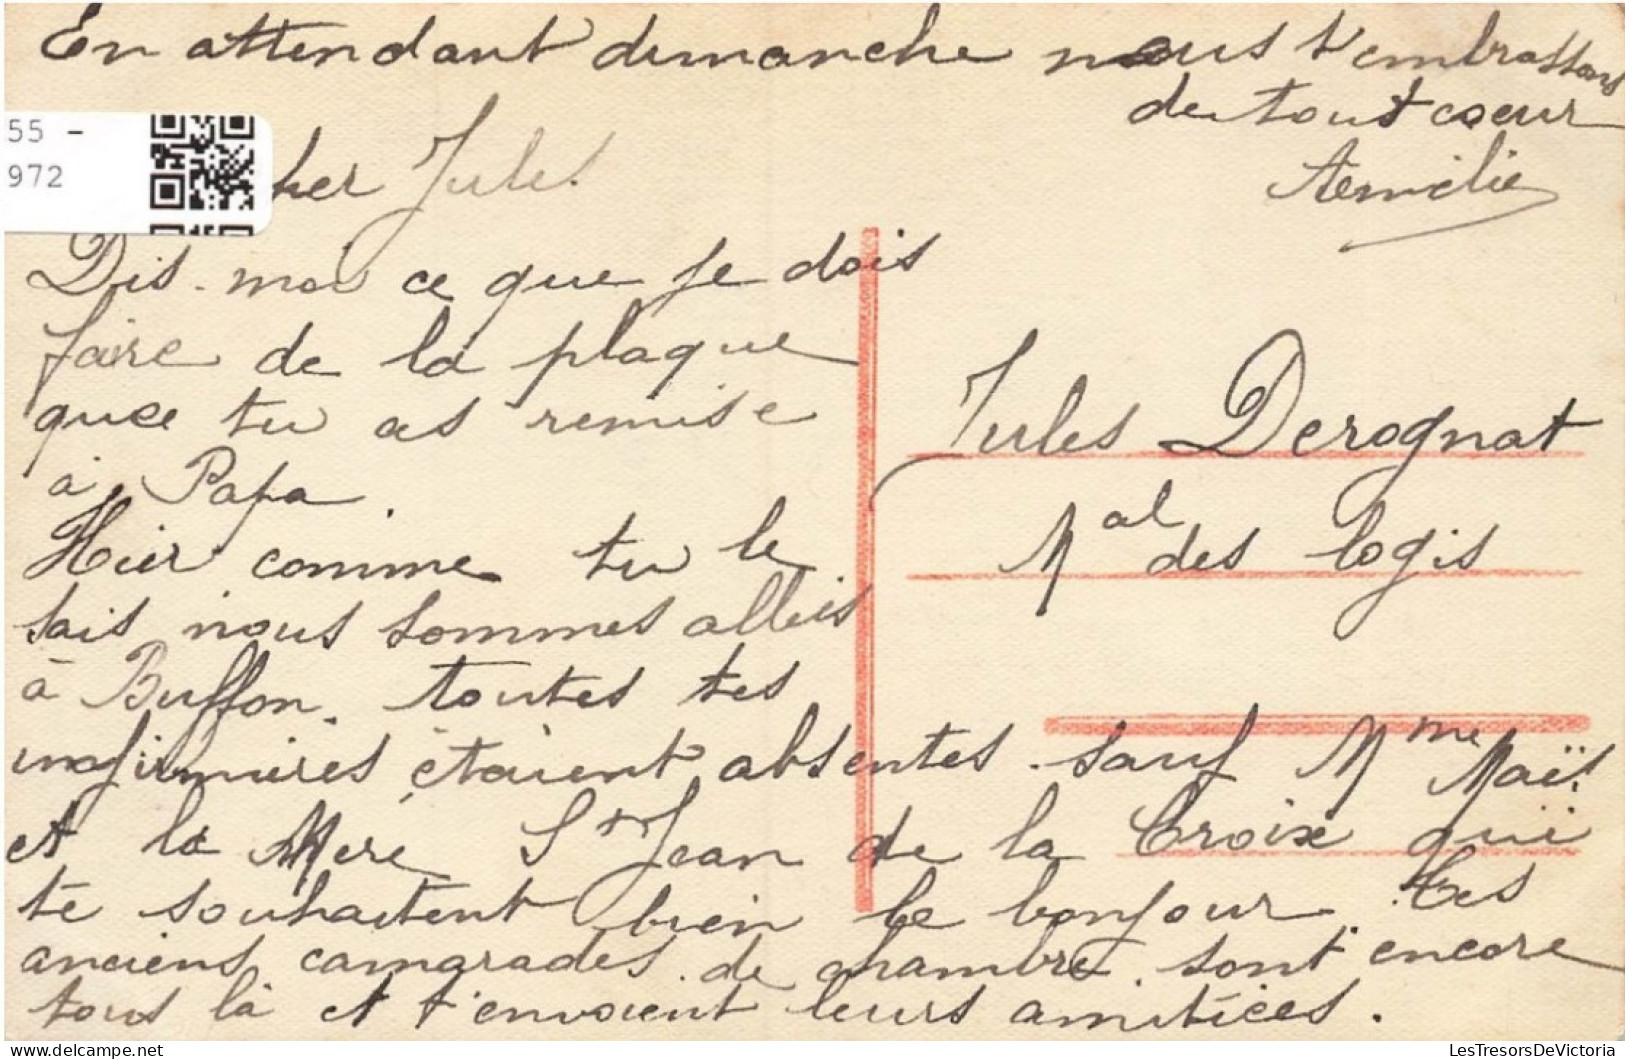 En attendant dimanche nous t'embrassons
de tout coeur
Aemélie
55 -
972
cher Jules.
Dis-moi ce que je dois
faire de la plaque
que tu as remise
à Papa.
Jules Derognat
Mal des logis
Hier comme tu le
sais nous sommes allées
à Buffon. toutes tes
infirmières étaient absentes. sauf Mme Maës.
et la Mere St Jean de la Croix qui
te souhaitent bien le bonjour. tes
anciens camarades de chambre sont encore
tous là et t'envoient leurs amitiées.
LesTresorsDeVictoria